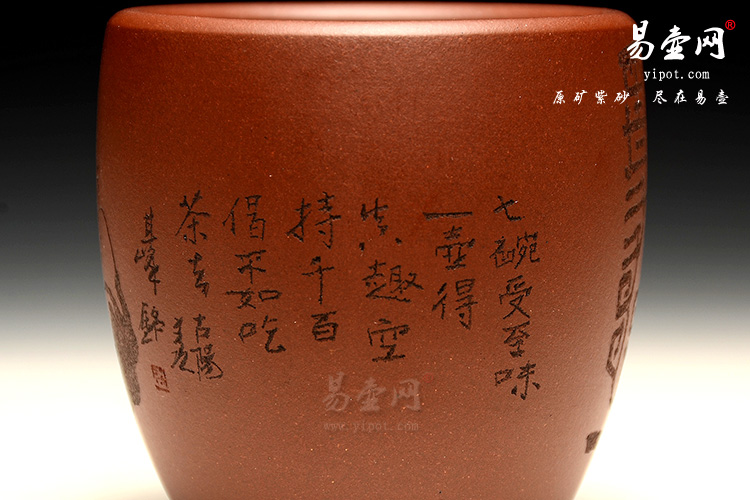 易壶网®
yipot.com
原矿紫砂，尽在易壶
七碗受至味
一壶得
真趣空
持千百
偈不如吃
茶去 古陽
其峰
易壶网
www.yipot.com